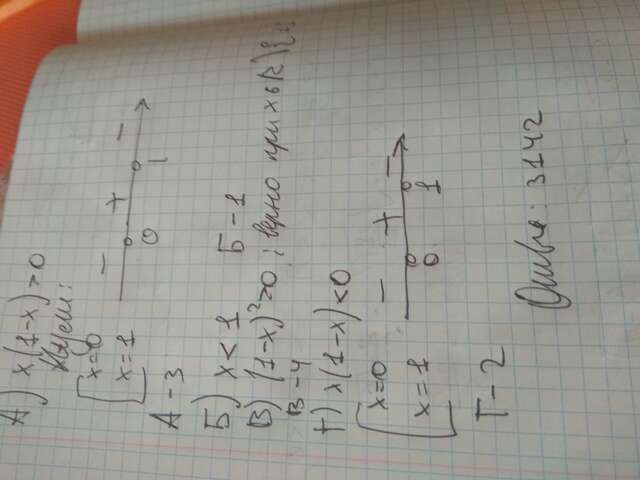 А) x(1-x)>0
Нули:
[x=0
x=1
- + -
0 1
А-3
Б) x<1 Б-1
В) (1-x)²>0; верно при x∈R\{1}
В-4
Г) x(1-x)<0
[x=0
x=1
- + -
0 1
Г-2
Ответ: 3142